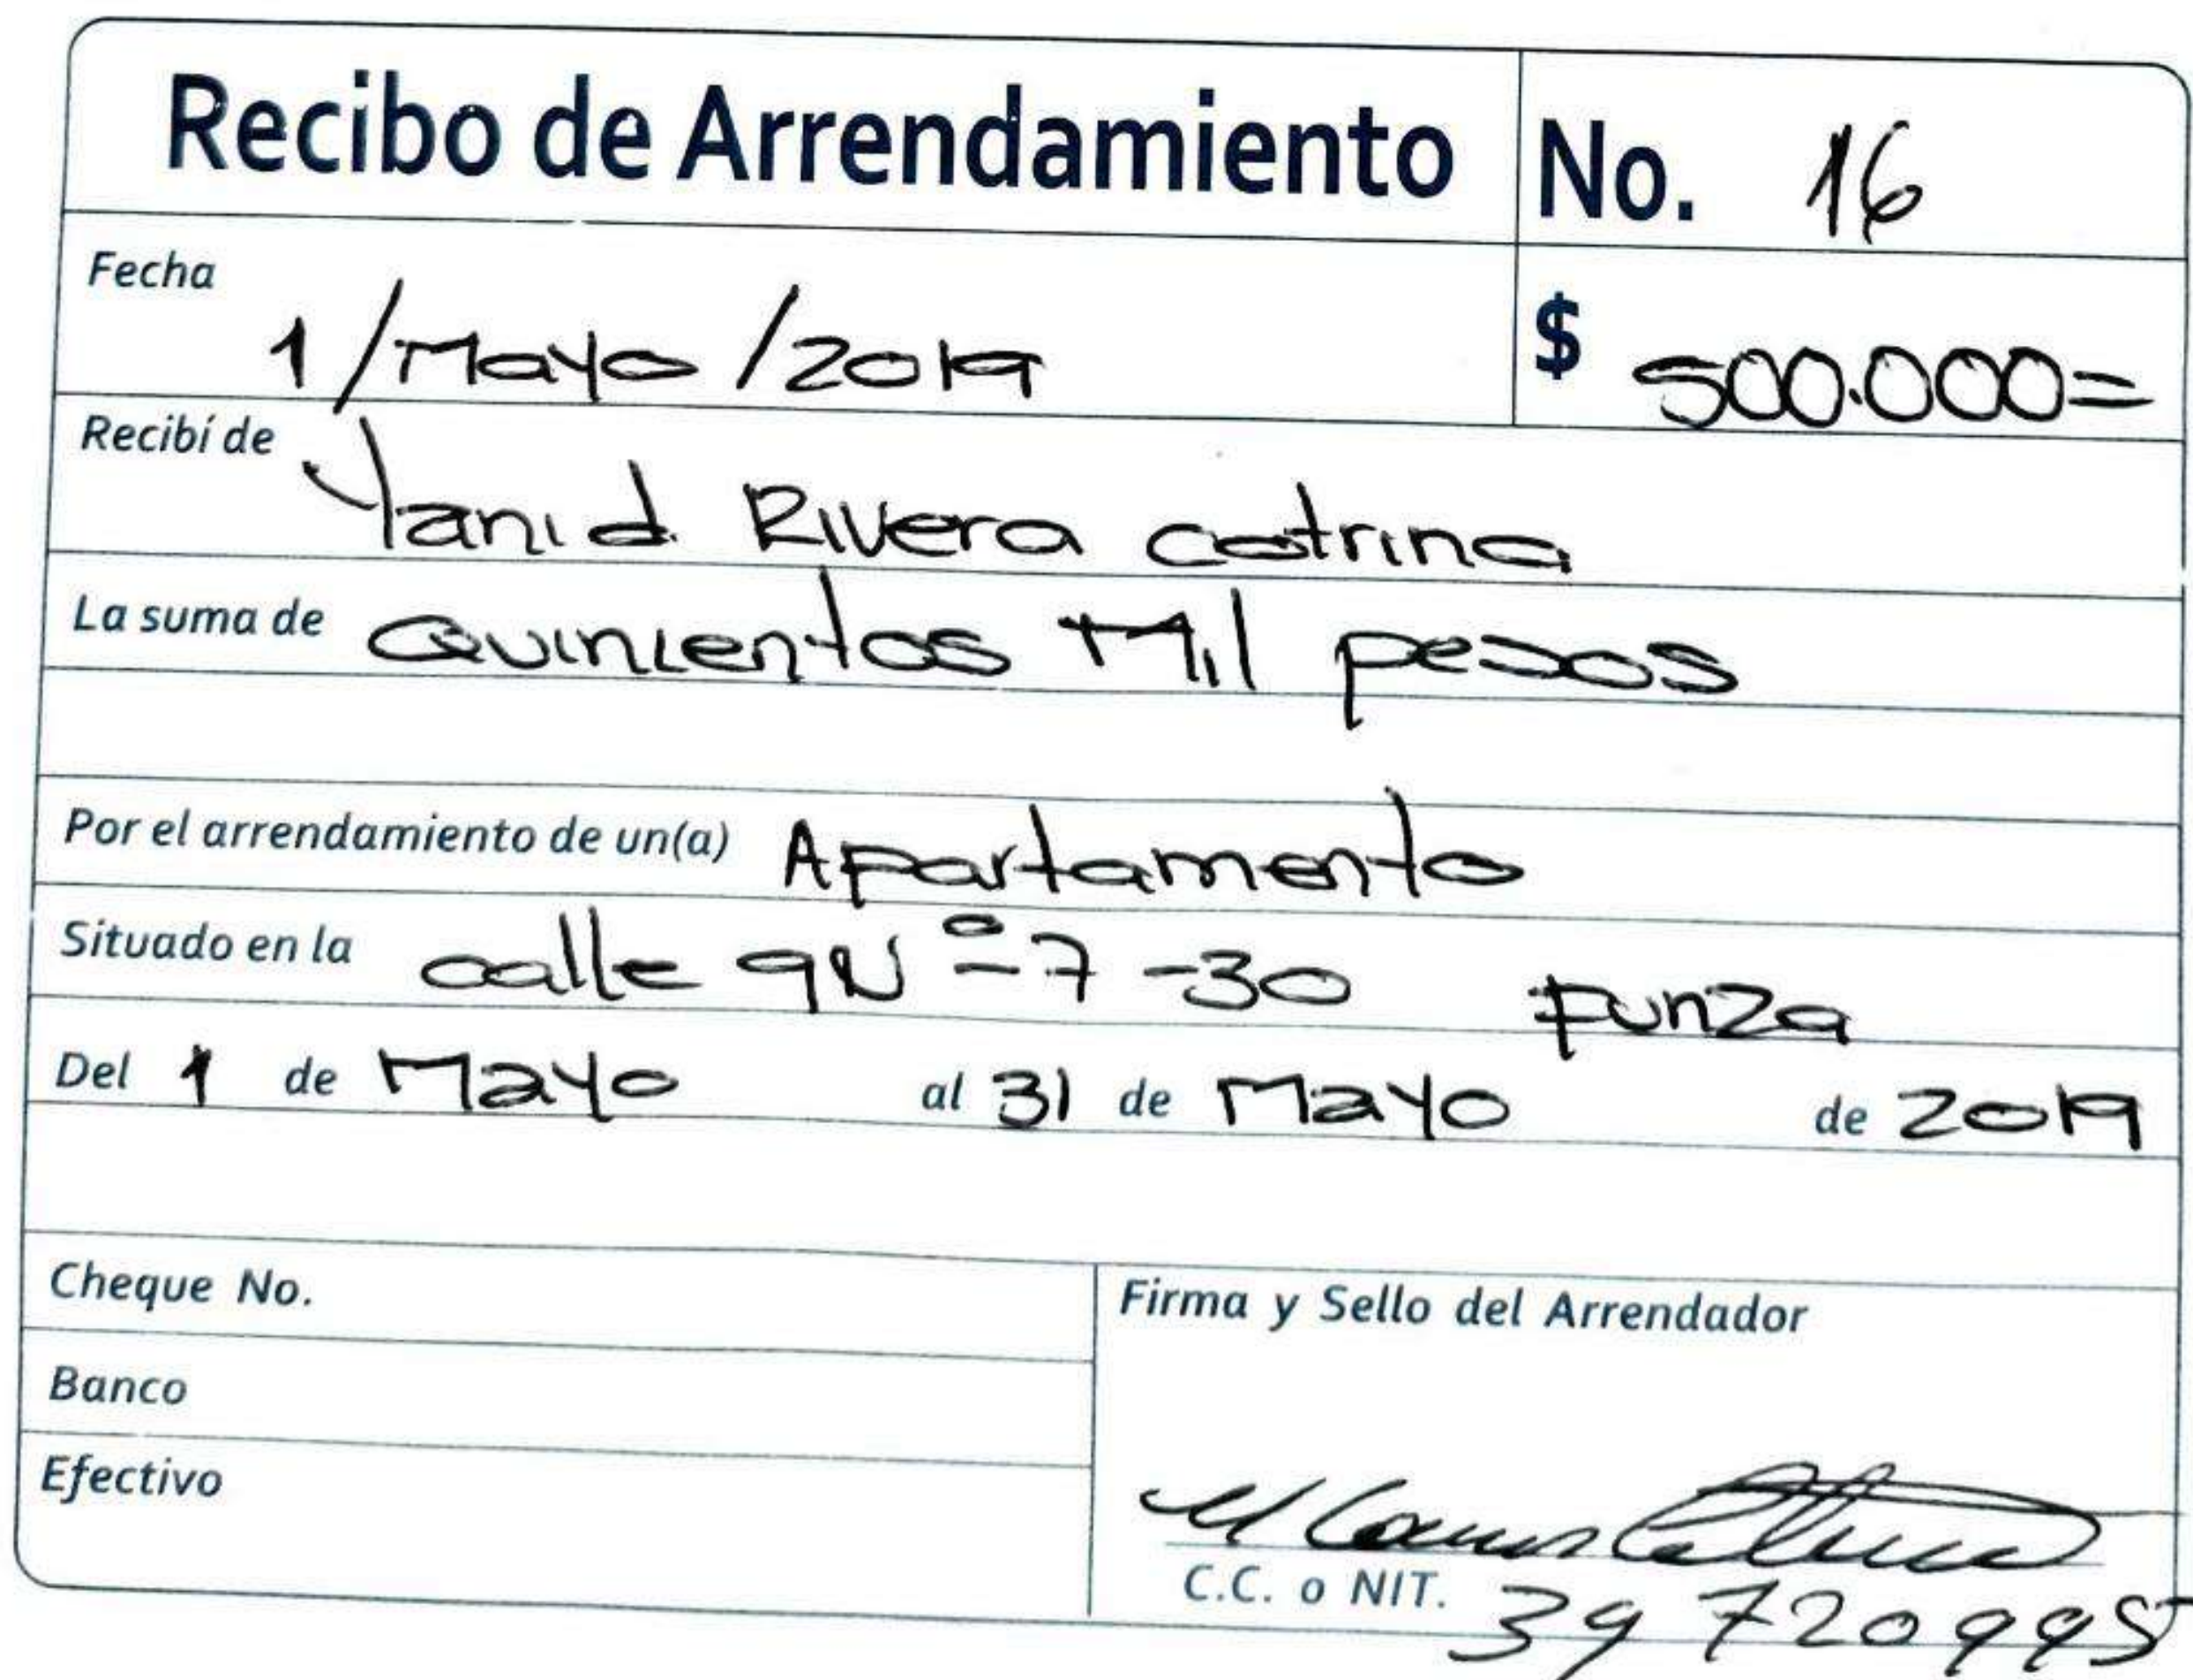 Recibo de Arrendamiento No. 16
Fecha 1/Mayo/2019 $ 500.000=
Recibí de Yanid Rivera catrina
La suma de Quinientos Mil pesos
Por el arrendamiento de un(a) Apartamento
Situado en la calle 9 Nº 7-30 Funza
Del 1 de Mayo al 31 de Mayo de 2019
Cheque No.
Firma y Sello del Arrendador
Banco
Efectivo
C.C. o NIT. 39 720995